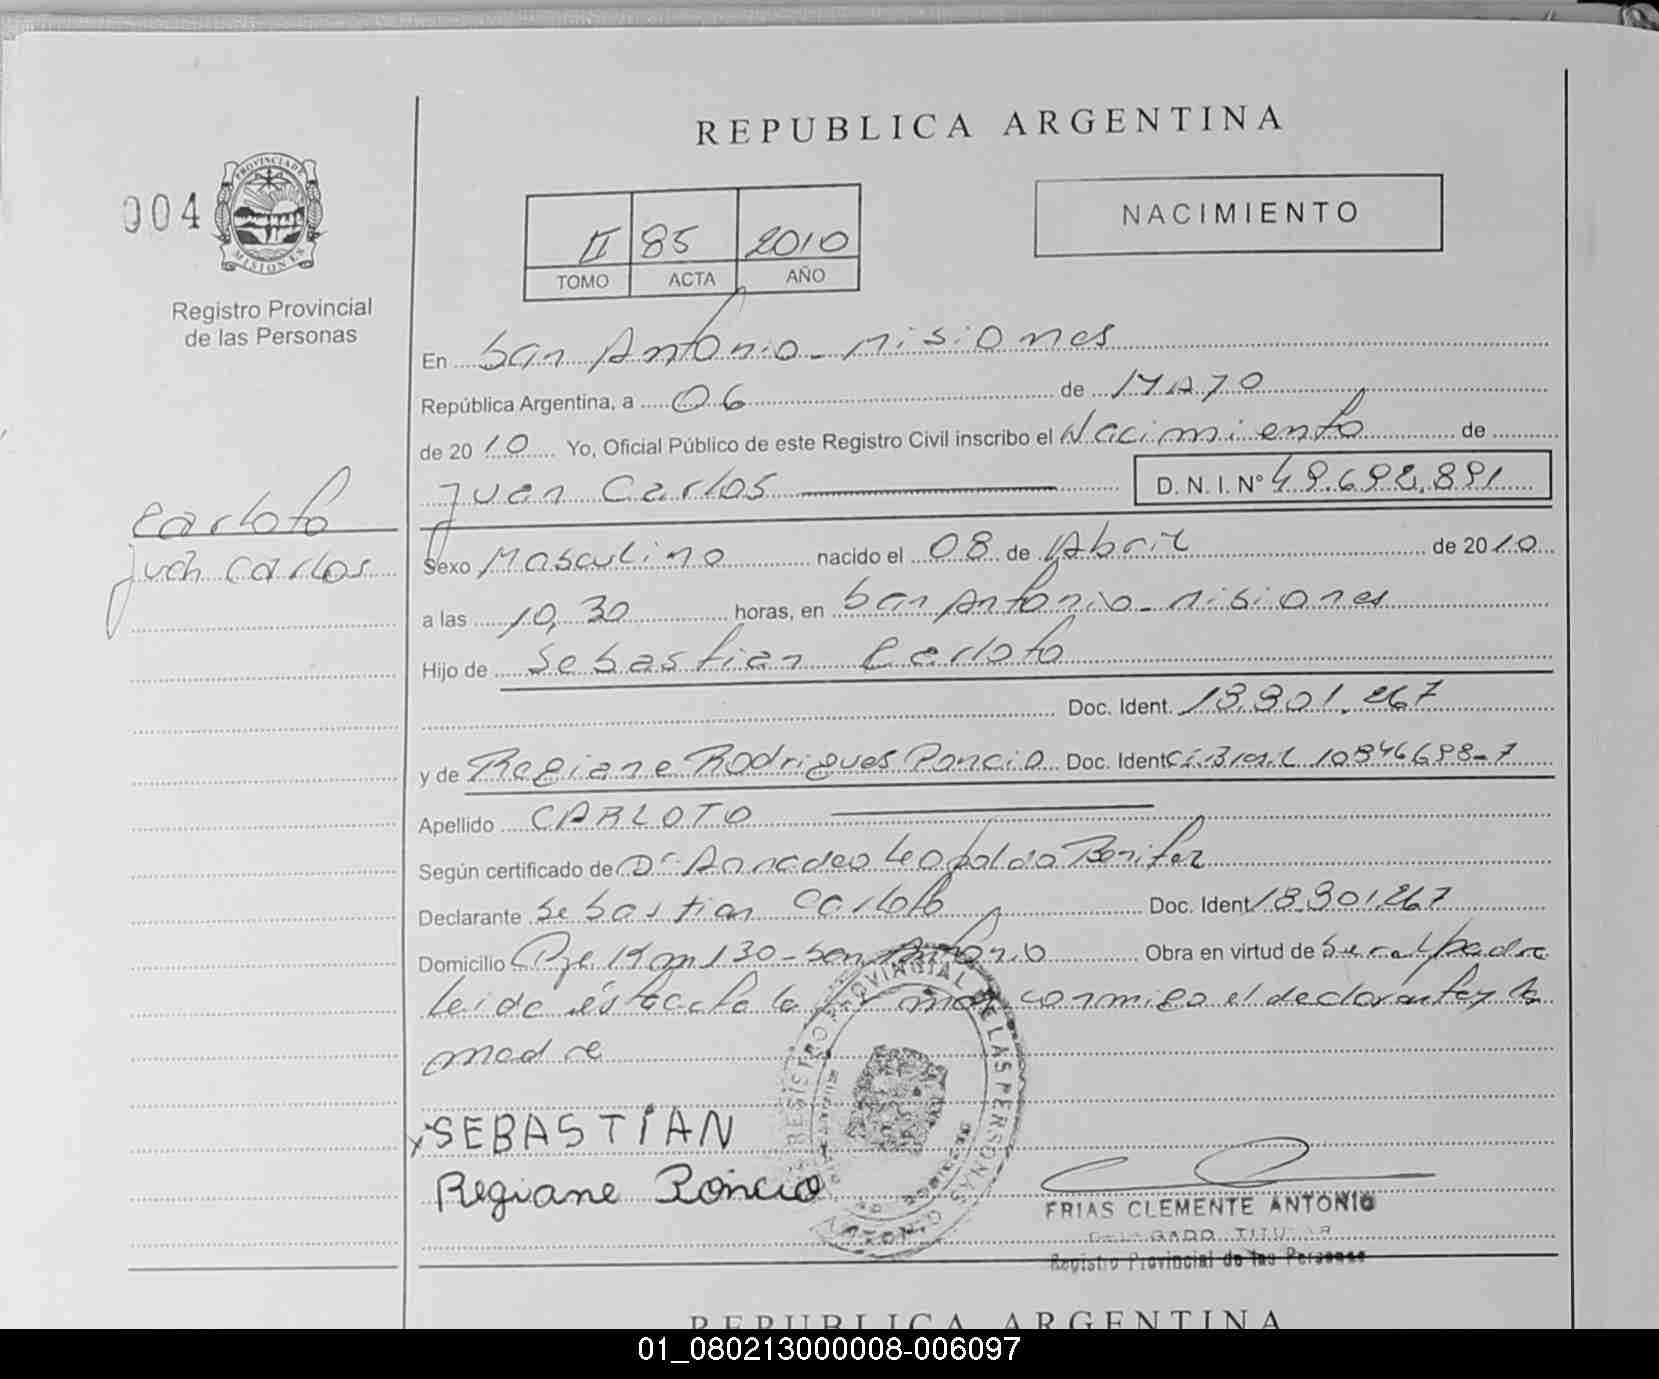 REPUBLICA ARGENTINA
004
PROVINCIA DE
MISIONES
Registro Provincial
de las Personas
NACIMIENTO
II 85 2010
TOMO ACTA AÑO
En San Antonio - Misiones
República Argentina, a 06 de MAYO
de 2010 Yo, Oficial Público de este Registro Civil inscribo el Nacimiento de
Juan Carlos D.N.I. Nº
Carloto
Juan Carlos
Sexo Masculino nacido el 08 de Abril de 2010
a las 10,30 horas, en San Antonio - Misiones
Hijo de Sebastian Carloto
Doc. Ident. 18.901.267
y de Regiane Rodrigues Poncio Doc. Ident
Apellido CARLOTO
Según certificado de Dr Amadeo Leopoldo Benitez
Declarante Sebastian Carloto Doc. Ident 18.901.267
Domicilio Pje Km 130 - San Antonio Obra en virtud de Ser el padre
leida ésta acta la firman conmigo el declarante y la
madre
REGISTRO PROVINCIAL DE LAS PERSONAS
X SEBASTIÁN
Regiane Poncio
FRIAS CLEMENTE ANTONIO
DELEGADO TITULAR
Registro Provincial de las Personas
REPUBLICA ARGENTINA
01_080213000008-006097